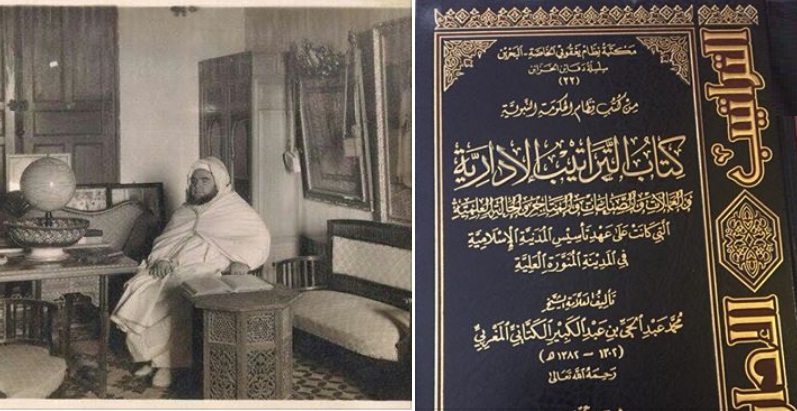 مكتبة نظام يعقوبي الخاصة - البحرين
سلسلة دفائن الخزائن
(٢٢)
من كتب نظام الحكومة النبوية
كتاب التراتيب الإدارية
والعمالات والصناعات والمتاجر والحالة العلمية
التي كانت على عهد تأسيس المدنية الإسلامية
في المدينة المنورة العلية
تأليف العلامة الشيخ
محمد عبد الحي بن عبد الكبير الكتاني المغربي
(١٣٠٢ - ١٣٨٢ هـ)
رحمه الله تعالى
التراتيب